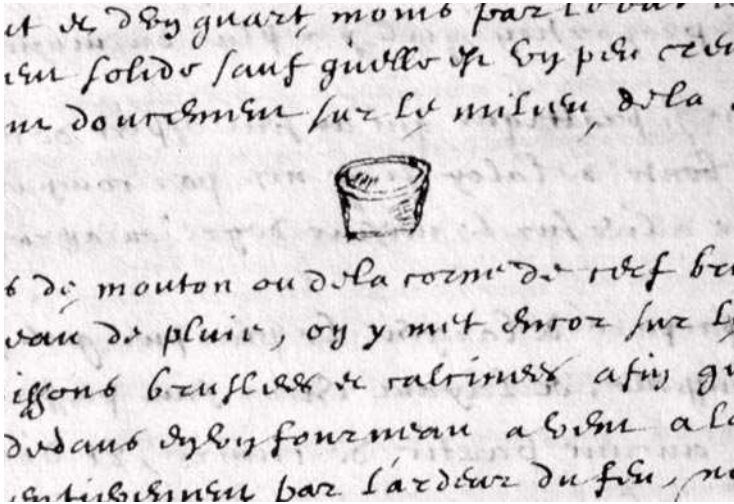 et de d'en quart moins par l
ent solide sauf qu'elle est un peu creu
doucement sur le milieu de la
s de mouton ou de la corne de cerf bru
eau de pluie, on y met encor sur l
issons bruslees et calcinees afin qu
dedans en un fourneau a vent a la
entierement par l'ardeur du feu,